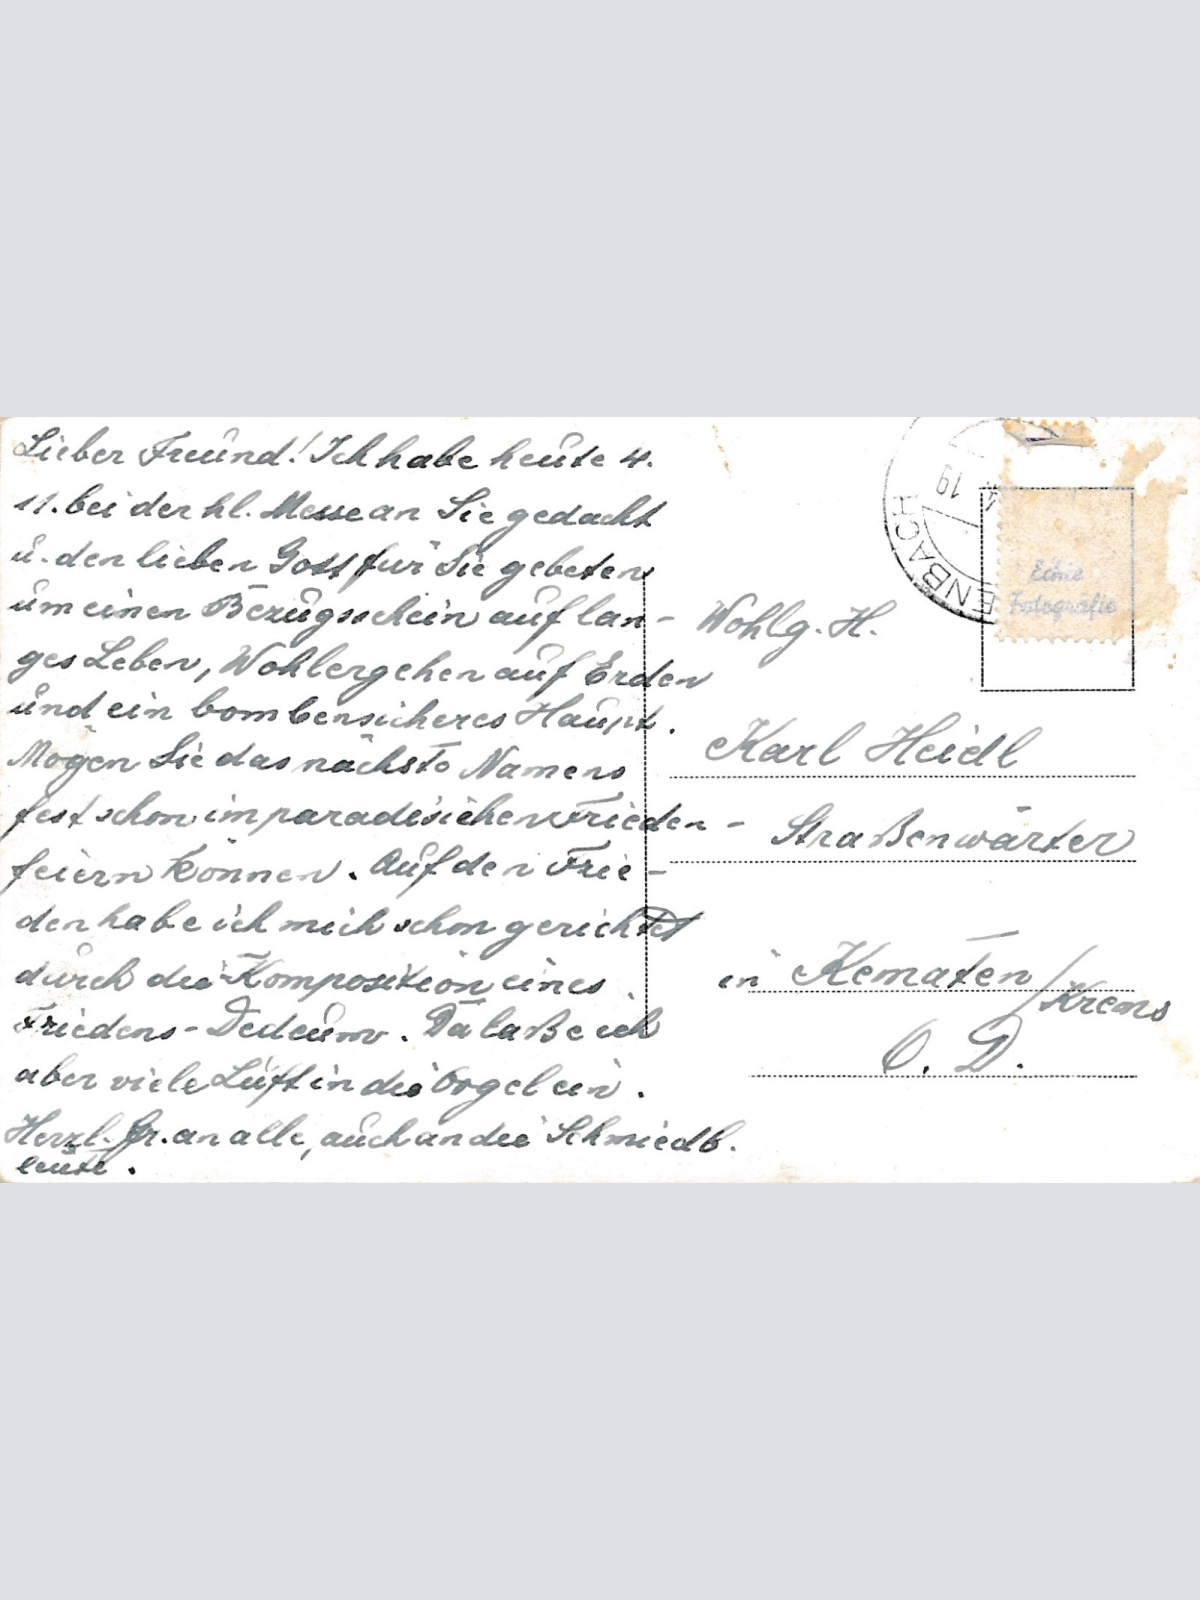 Lieber Freund! Ich habe heute 4.
11. bei der hl. Messe an Sie gedacht
u. den lieben Gott für Sie gebeten
um einen Bezugsschein auf lan-
ges Leben, Wohlergehen auf Erden
und ein bombensicheres Haupt.
Mögen Sie das nächste Namens
fest schon im paradisichen Frieden -
feiern können. Auf den Frie-
den habe ich mich schon gerichtet
durch die Komposition eines
Friedens-Dedeums. Da laße ich
aber viele Luft in die Orgel ein.
Herzl. Gr. an alle, auch an die Schmiedb.
leute.
ENBACH
19
Echte
Fotografie
Wohlg. H.
Karl Heidl
Straßenwärter
in Kematen/Krems
O. D.